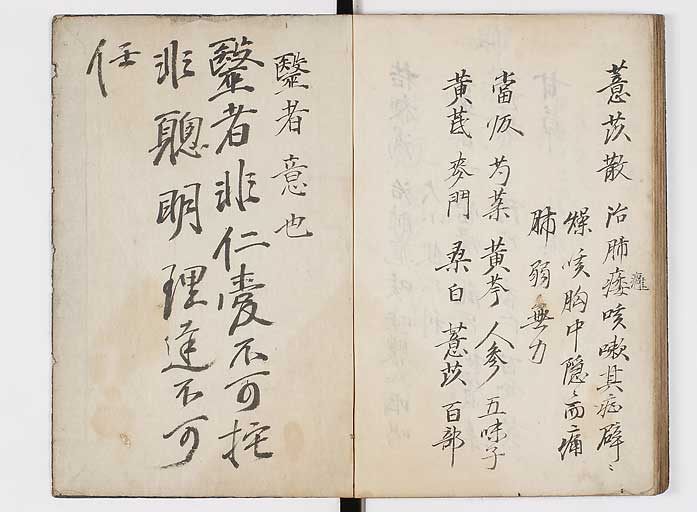 薏苡散 治肺痿咳嗽其症辟〻
癰
燥咳胸中隱〻而痛
肺弱無力
當皈 芍薬 黄芩 人參 五味子
黄芪 麥門 桑白 薏苡 百部
毉者意也
毉者非仁愛不可托
非聰明理達不可
任